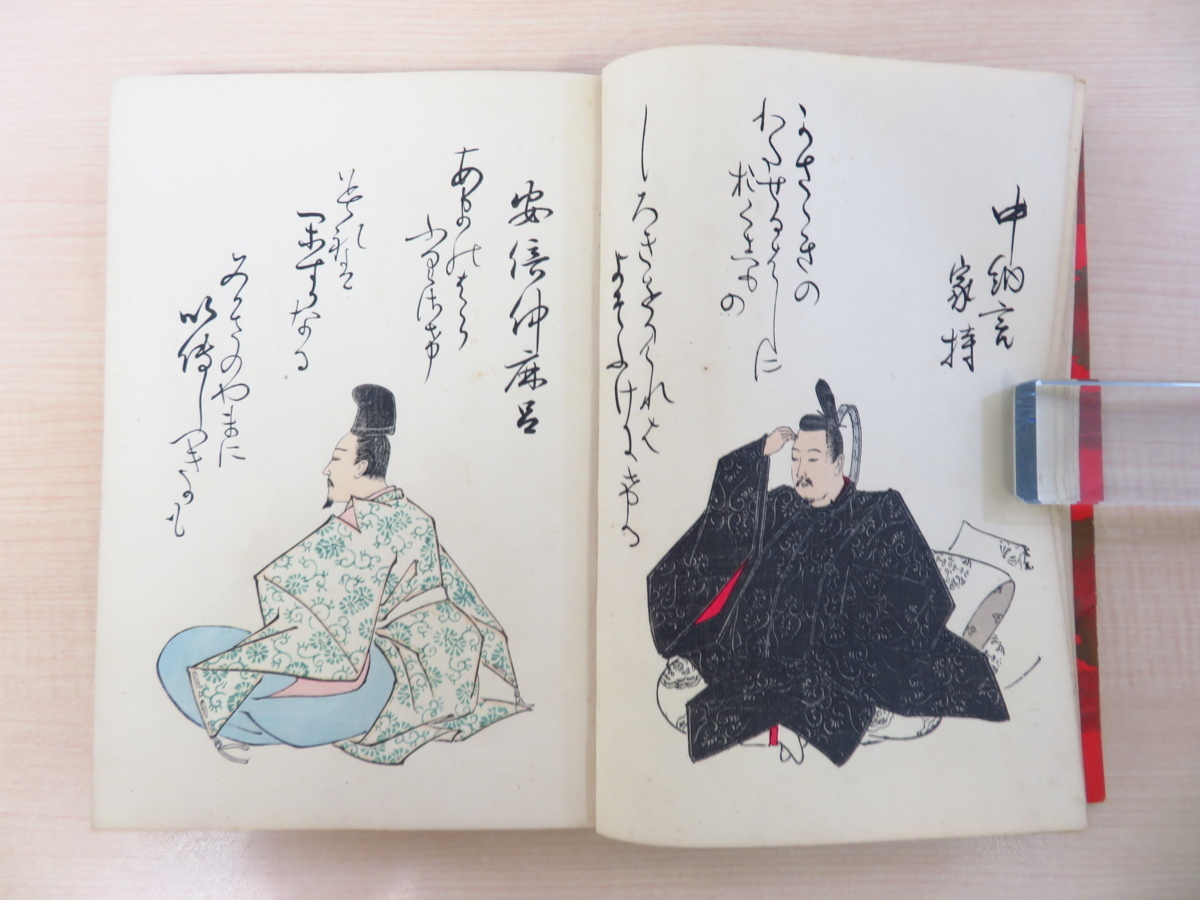 中納言
家持
かさゝきの
わたせるはしに
於く霜の
しろきをみれは
よそふけにける
安倍仲麻呂
あまの原
ふりさけ
み禮は
かすかなる
みかさのやまに
以傳しつきかも